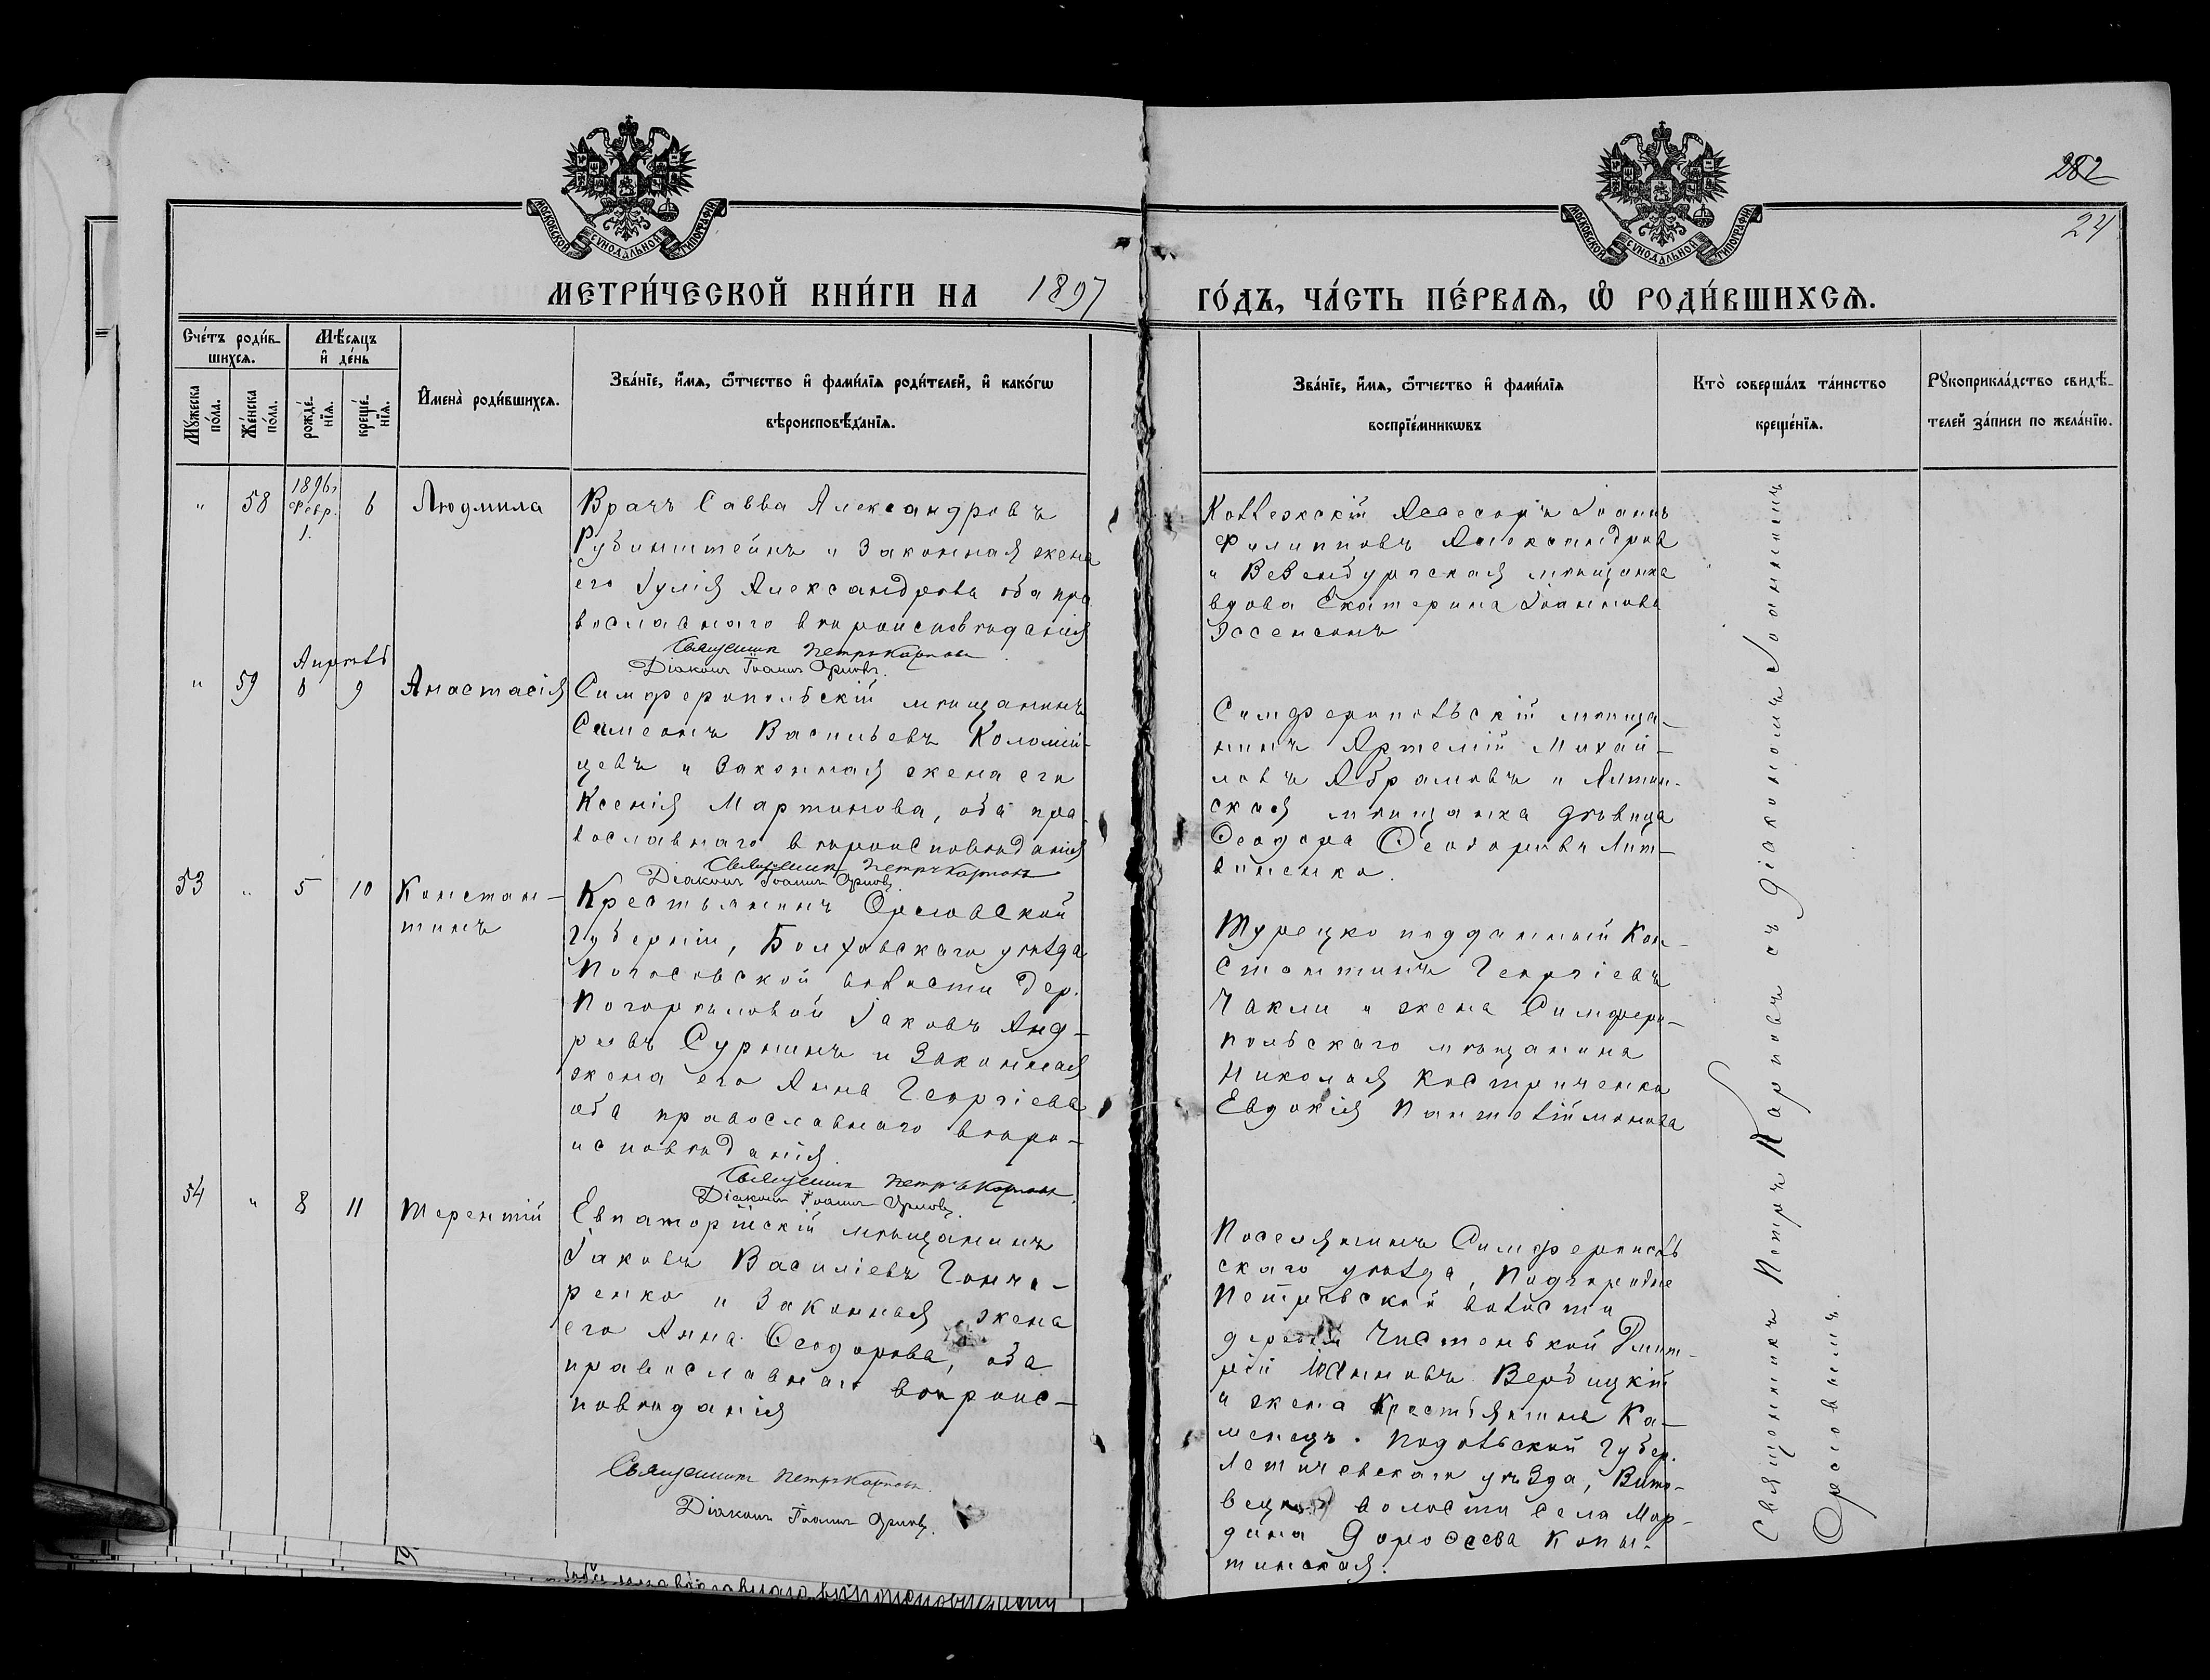 282
24
МОСКОВСКОЙ СѴНОДАЛЬНОЙ ТИПОГРАФІИ
МОСКОВСКОЙ СѴНОДАЛЬНОЙ ТИПОГРАФІИ
МЕТРИ́ЧЕСКОЙ КНИ́ГИ НА 1897 ГО́ДЪ, ЧА́СТЬ ПЕ́РВАѦ, Ѡ҆ РОДИ́ВШИХСѦ.
Сче́тъ роди́в-
шихсѧ.
Мѣ́сѧцъ
и҆ де́нь
Мꙋ́жеска
по́ла.
Же́нска
по́ла.
рожде́-
нїѧ.
креще́-
нїѧ.
И҆мена̀ роди́вшихсѧ.
Зва́нїе, и҆́мѧ, ѻ҆́тчество и҆ фами́лїѧ роди́телей, и҆ како́гѡ
вѣроисповѣ́данїѧ.
Зва́нїе, и҆́мѧ, ѻ҆́тчество и҆ фами́лїѧ
воспрїе́мникѡвъ
Кто̀ соверша́лъ та́инство
креще́нїѧ.
Рꙋкоприкла́дство свидѣ́-
телей за́писи по жела́нїю.
" 58 1896г Февр. 1. 6 Людмила
Врачъ Савва Александровъ
Рубинштейнъ и законная жена
его Іулія Александрова оба пра
вославнаго вѣроисповѣданія
Священникъ Петръ Карповъ
Діаконъ Іоаннъ Орловъ.
Коллежскій Ассесоръ Іоаннъ
Филипповъ Александровъ
и мѣщанка
вдова Екатерина Іоаннова
" 59 Апрѣль 6 9 Анастасія
Симферопольскій мѣщанинъ
Симеонъ Васильевъ Коломій-
цевъ и законная жена его
Ксенія Мартинова, оба пра-
вославнаго вѣроисповѣданія
Священникъ Петръ Карповъ
Діаконъ Іоаннъ Орловъ.
Симферопольскій мѣща-
нинъ Артемій Михай-
ловъ Абрамовъ и Ялтин-
ская мѣщанка дѣвица
Ѳеодора Ѳеодорова Лит-
виненко.
53 " 5 10 Констан-
тинъ
Крестьянинъ Орловской
губерніи, Болховскаго уѣзда
волости дер.
Погорѣловой Іаковъ Анд-
реевъ Сурнинъ и законная
жена его Анна Георгіева
оба православнаго вѣро-
исповѣданія.
Священникъ Петръ Карповъ.
Діаконъ Іоаннъ Орловъ.
Турецко подданный Кон-
стантинъ Георгіевъ
Чакли и жена Симферо-
польскаго мѣщанина
Николая Костриченко
Евдокія Пантелеймонова
54 " 8 11 Терентій
Евпаторійскій мѣщанинъ
Іаковъ Василіевъ Гонча-
ренко и законная жена
его Анна Ѳеодорова, оба
православнаго вѣроис-
повѣданія
Священникъ Петръ Карповъ.
Діаконъ Іоаннъ Орловъ.
Поселянинъ Симферополь
скаго уѣзда, Подгородне
Петровской волости
деревни Чистенькой Дмит-
рій Іоанновъ Вербицкій
и жена крестьянина Ка-
менецъ. Подольской губер.
Летичевскаго уѣзда,
волости села Мар-
Дороѳеева Копы-
тинская.
Священникъ Петръ Карповъ съ діакономъ Іоанномъ
Орловымъ.